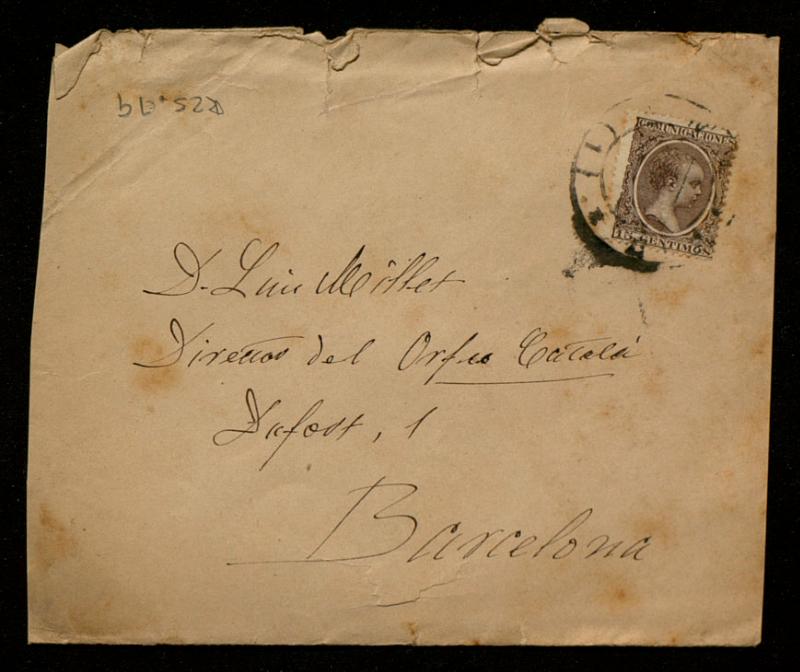 COMUNICACIONES
15 CENTIMOS
D. Luis Millet
Director del Orfeo Català
Dufort, 1
Barcelona